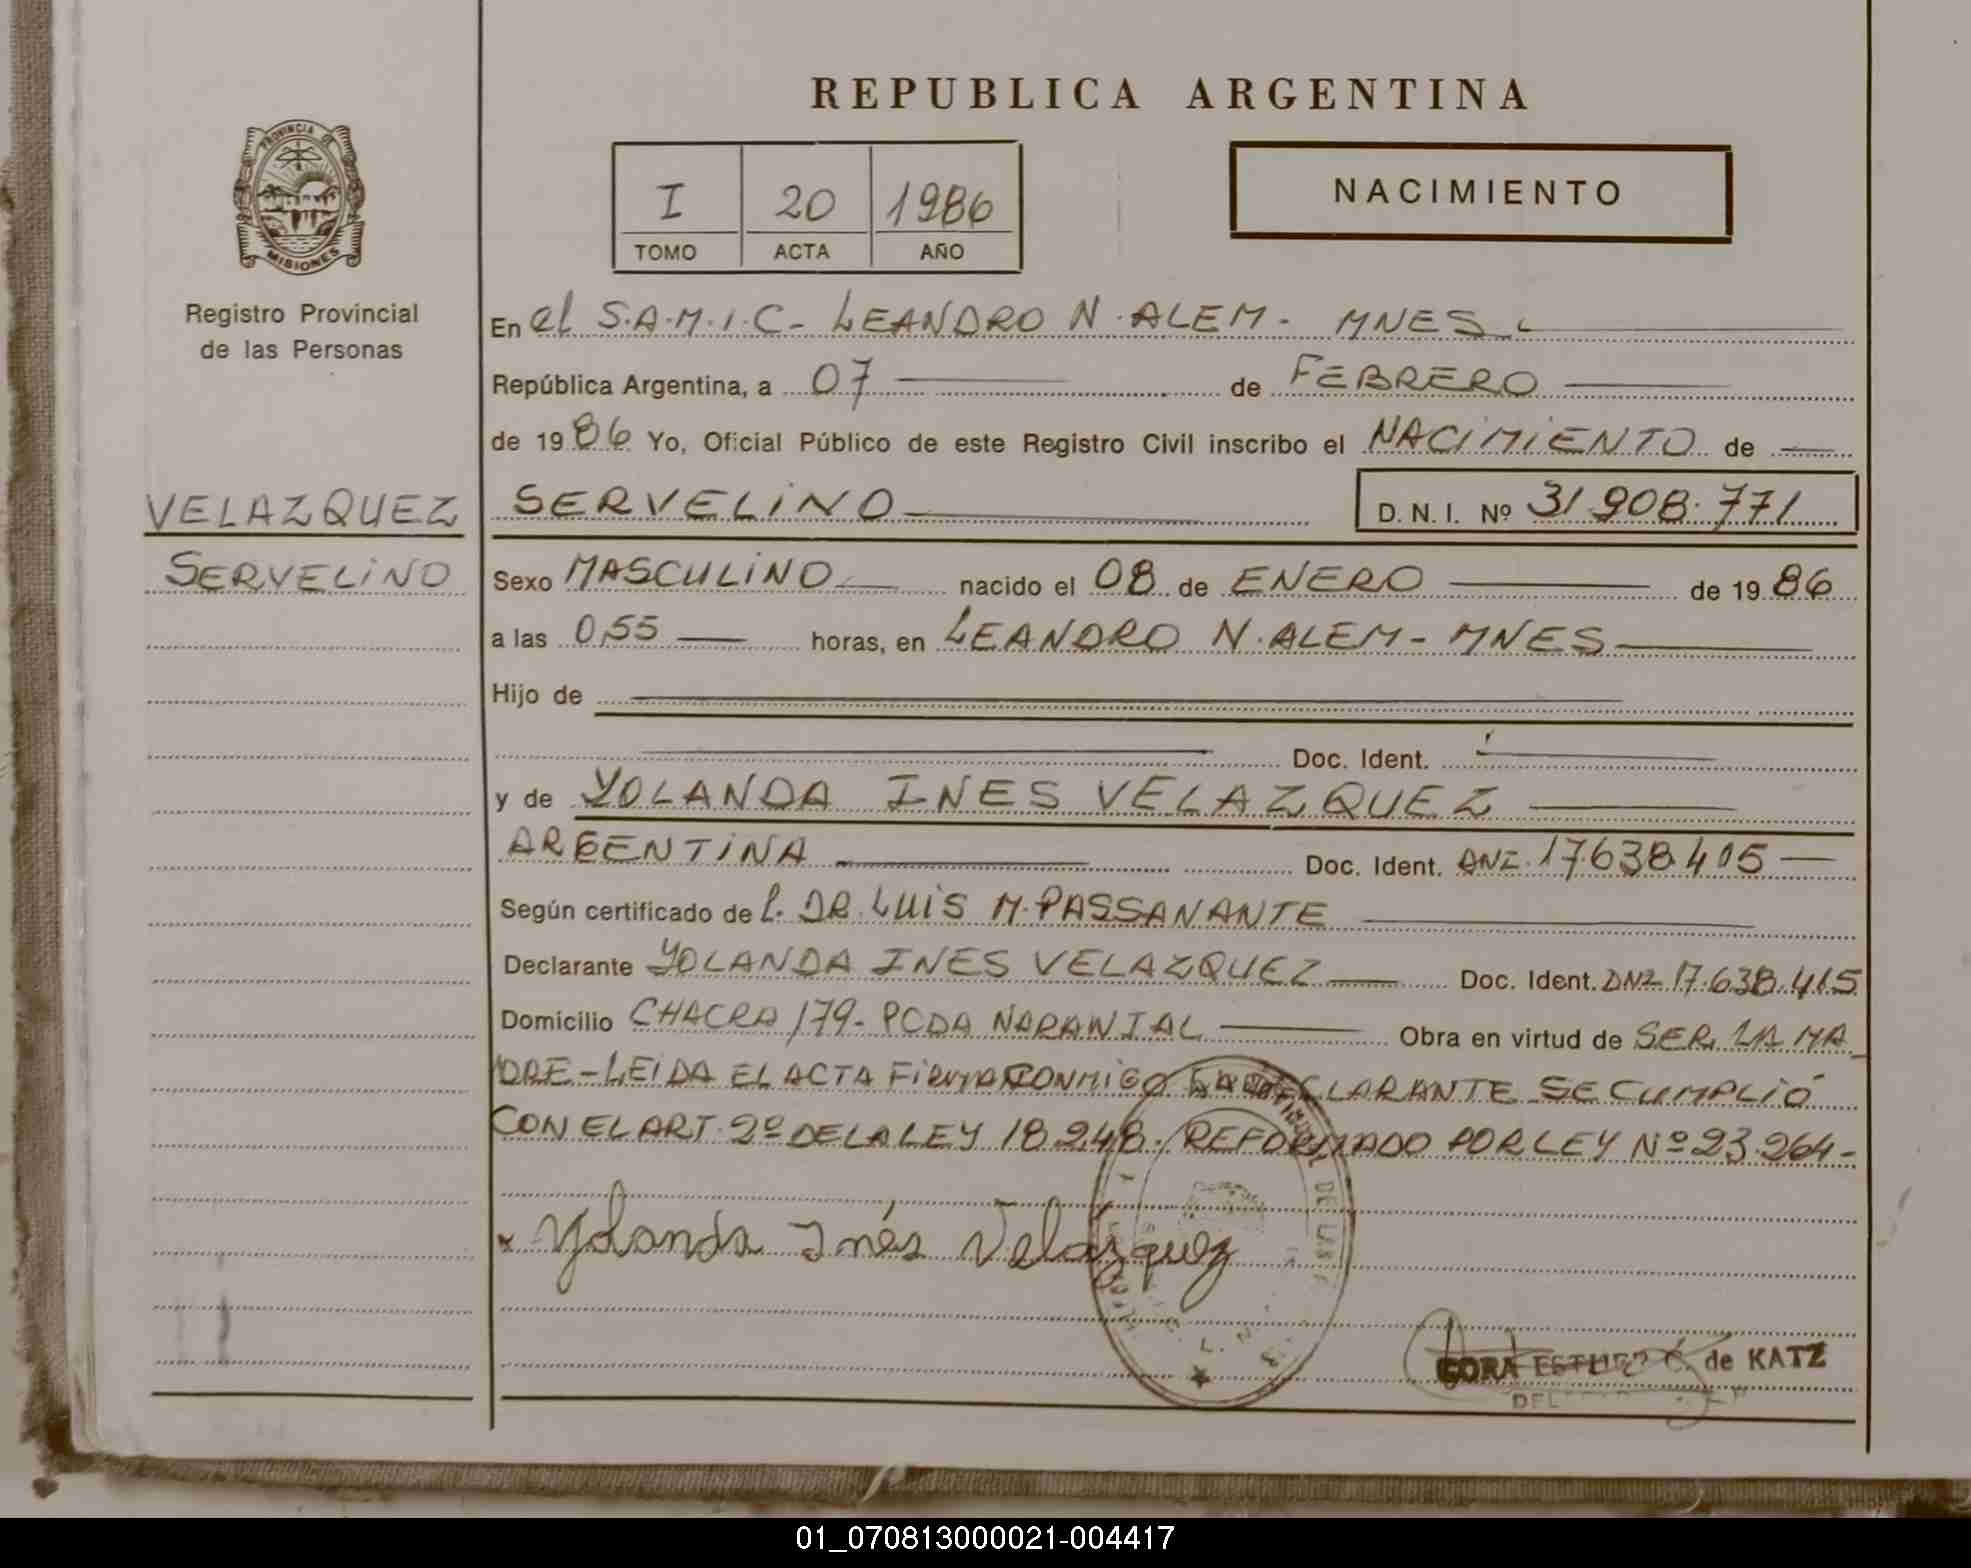 REPUBLICA ARGENTINA
PROVINCIA DE
MISIONES
Registro Provincial
de las Personas
I 20 1986
TOMO ACTA AÑO
NACIMIENTO
En el S.A.M.I.C- LEANDRO N. ALEM- MNES
República Argentina, a 07 de FEBRERO
de 1986 Yo, Oficial Público de este Registro Civil inscribo el NACIMIENTO de
VELAZQUEZ
SERVELINO
SERVELINO
D.N.I. Nº 31.908.771
Sexo MASCULINO nacido el 08 de ENERO de 1986
a las 0,55 horas, en LEANDRO N. ALEM- MNES
Hijo de
Doc. Ident.
y de YOLANDA INES VELAZQUEZ
ARGENTINA Doc. Ident. DNI. 17.638.415
Según certificado de l. DR. LUIS M. PASSANANTE
Declarante YOLANDA INES VELAZQUEZ Doc. Ident. DNI 17.638.415
Domicilio CHACRA 179- PCDA NARANJAL Obra en virtud de SER LA MA
DRE-LEIDA EL ACTA FIRMA CONMIGO LA DECLARANTE SE CUMPLIÓ
CON EL ART. 2º DE LA LEY 18.248. REFORMADO POR LEY Nº 23.264-
Yolanda Inés Velazquez
ESTHER C. de KATZ
01_070813000021-004417